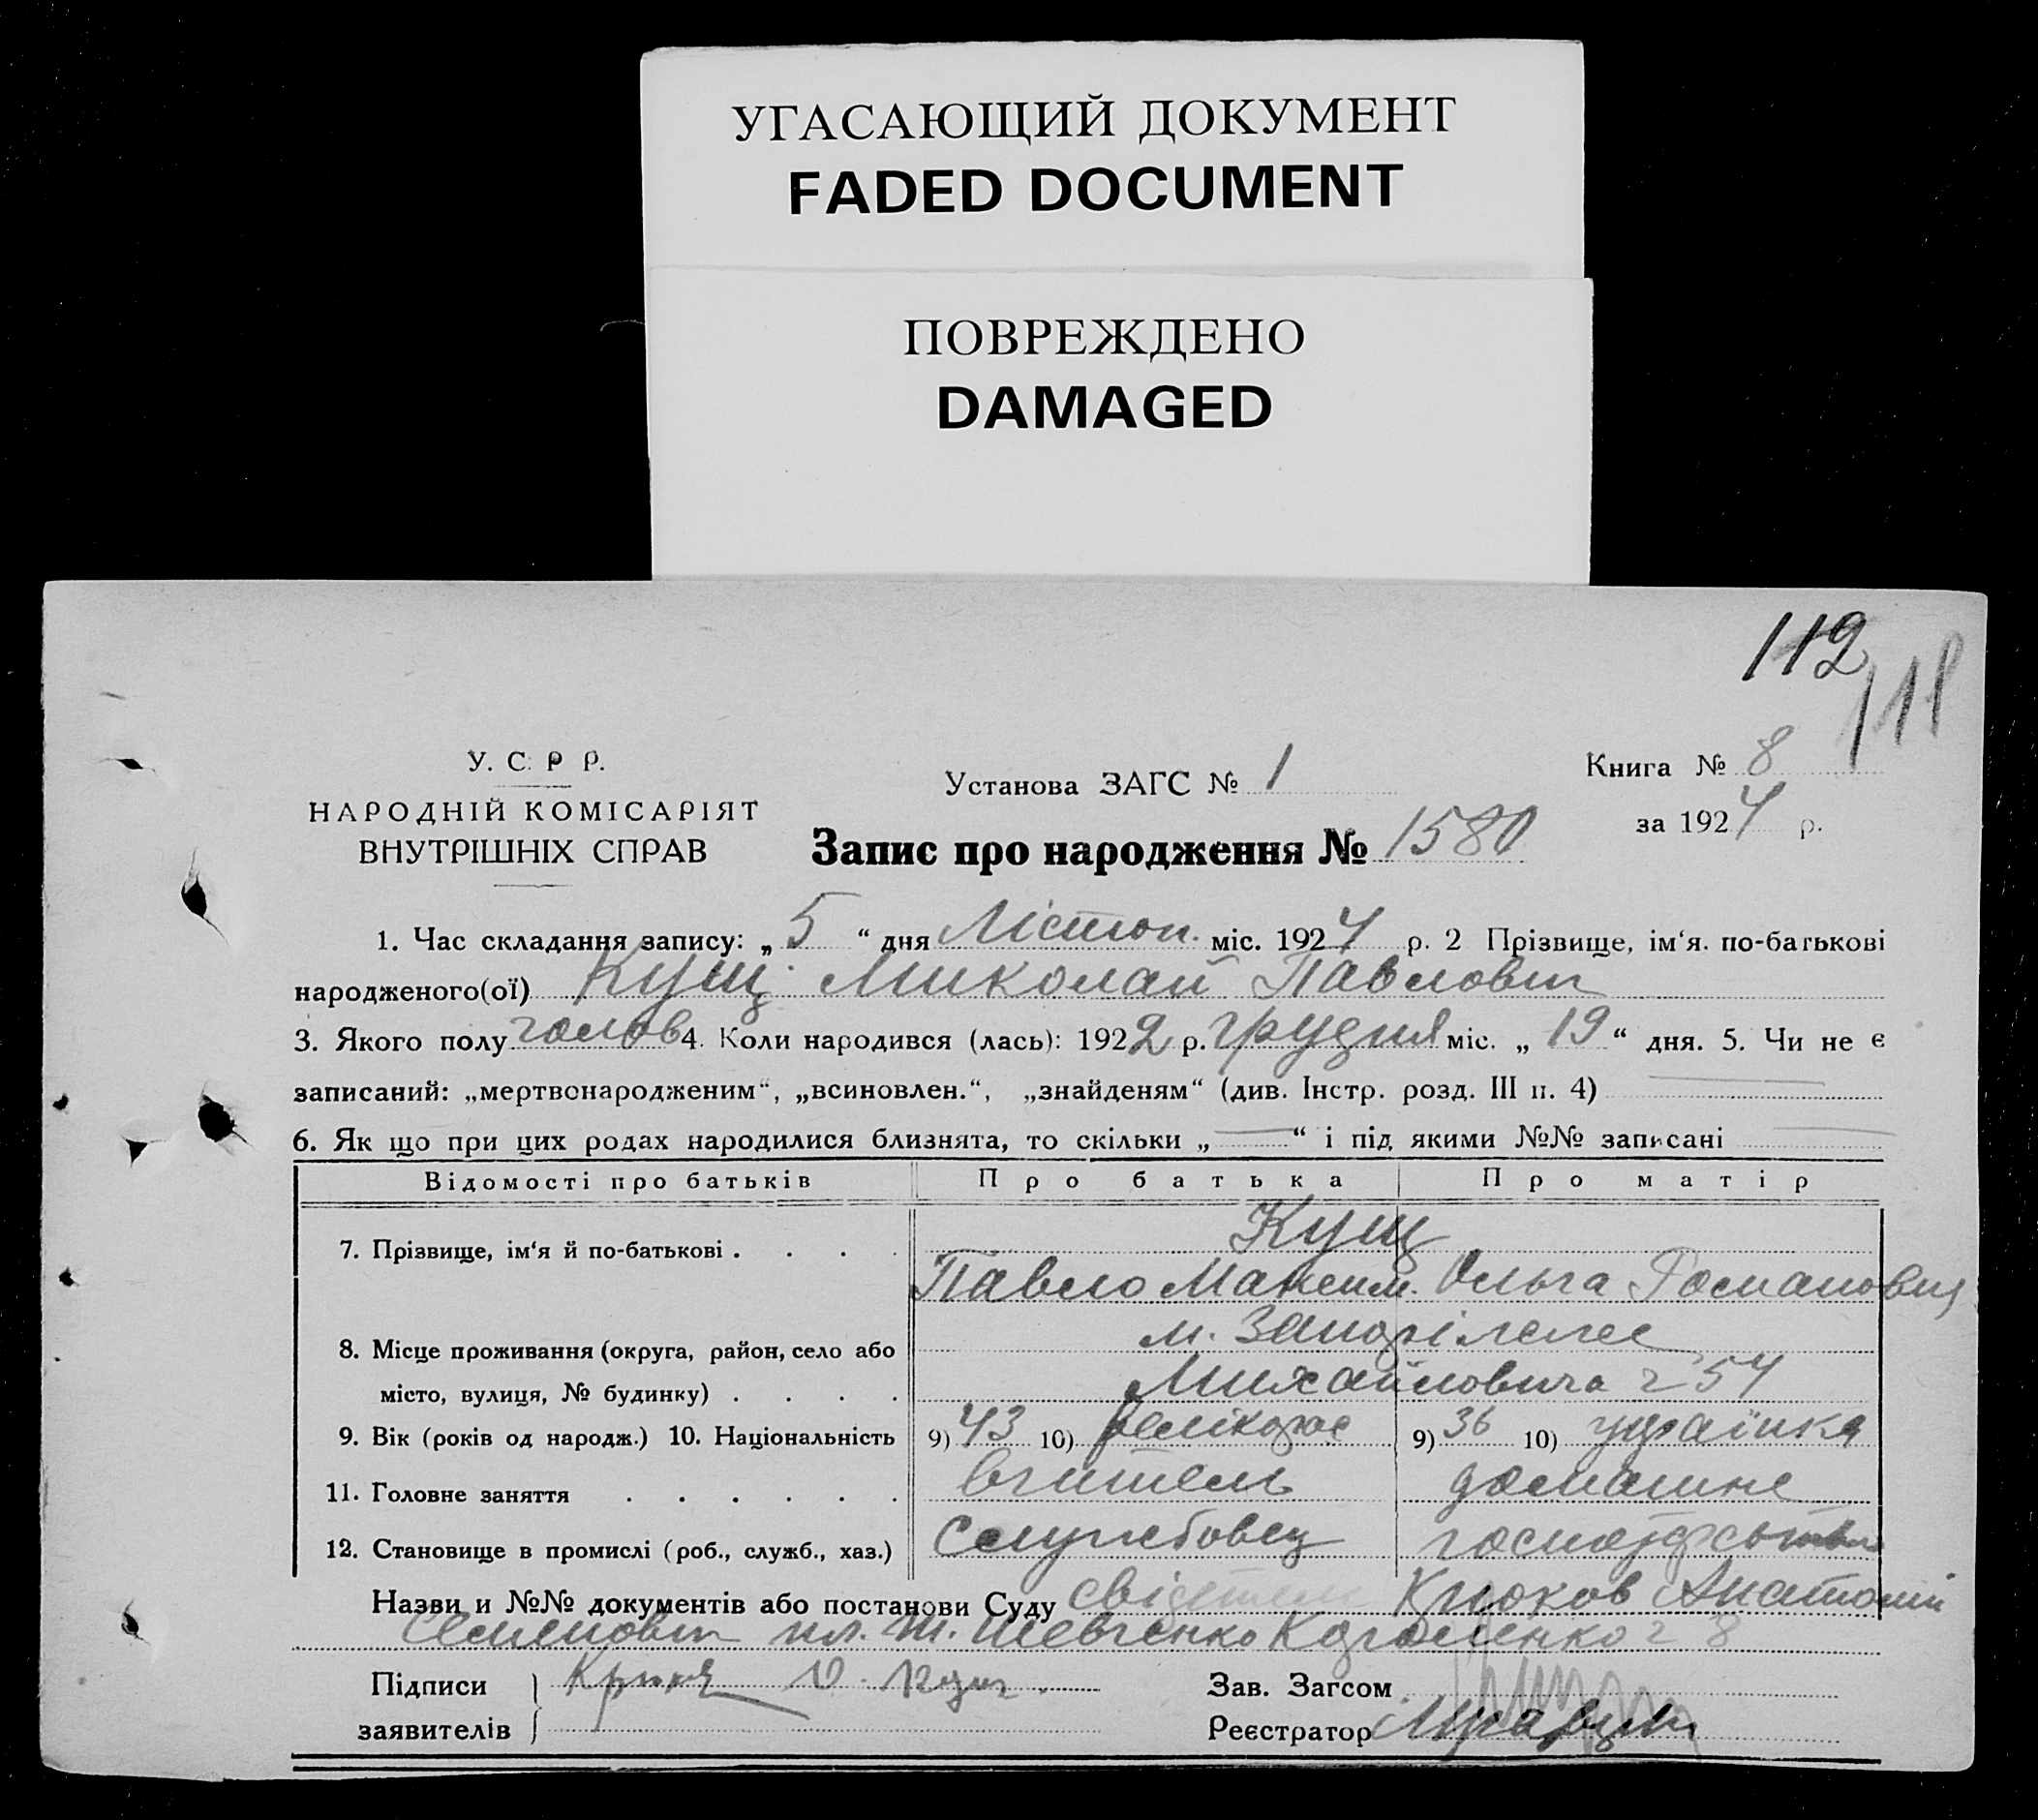 УГАСАЮЩИЙ ДОКУМЕНТ
FADED DOCUMENT
ПОВРЕЖДЕНО
DAMAGED
112
118
У. С. Р Р.
НАРОДНІЙ КОМІСАРІЯТ
ВНУТРІШНІХ СПРАВ
Установа ЗАГС № 1
Книга № 8
за 1924 р.
Запис про народження № 1580
1. Час складання запису: „ 5 “ дня Лістоп. міс. 1924 р. 2 Прізвище, ім‘я. по-батькові
народженого(ої) Кущ Миколай Павлович
3. Якого полу чолов 4. Коли народився (лась): 1922 р. грудня міс. „ 19 “ дня. 5. Чи не є
записаний: „мертвонародженим“, „всиновлен.“, „знайденям“ (див. Інстр. розд. III п. 4)
6. Як що при цих родах народилися близнята, то скільки „ — “ і під якими №№ записані —
Відомості про батьків Про батька Про матір
Кущ
7. Прізвище, ім‘я й по-батькові . . . .
Павло Максим. Ольга Романовна
м. Запоріжже
8. Місце проживання (округа, район, село або
місто, вулиця, № будинку) . . . . Михайловича ч 54
9. Вік (років од народж.) 10. Національність 9) 43 10) великорос 9) 36 10) українка
11. Головне заняття . . . . . . вчитель домашне
12. Становище в промислі (роб., служб., хаз.) Службовец господарство
Назви и №№ документів або постанови Суду свідетель Крюков Анатолий
Семенович пл. Т. Шевченко ч 8
Підписи
заявителів
Зав. Загсом
Реєстратор